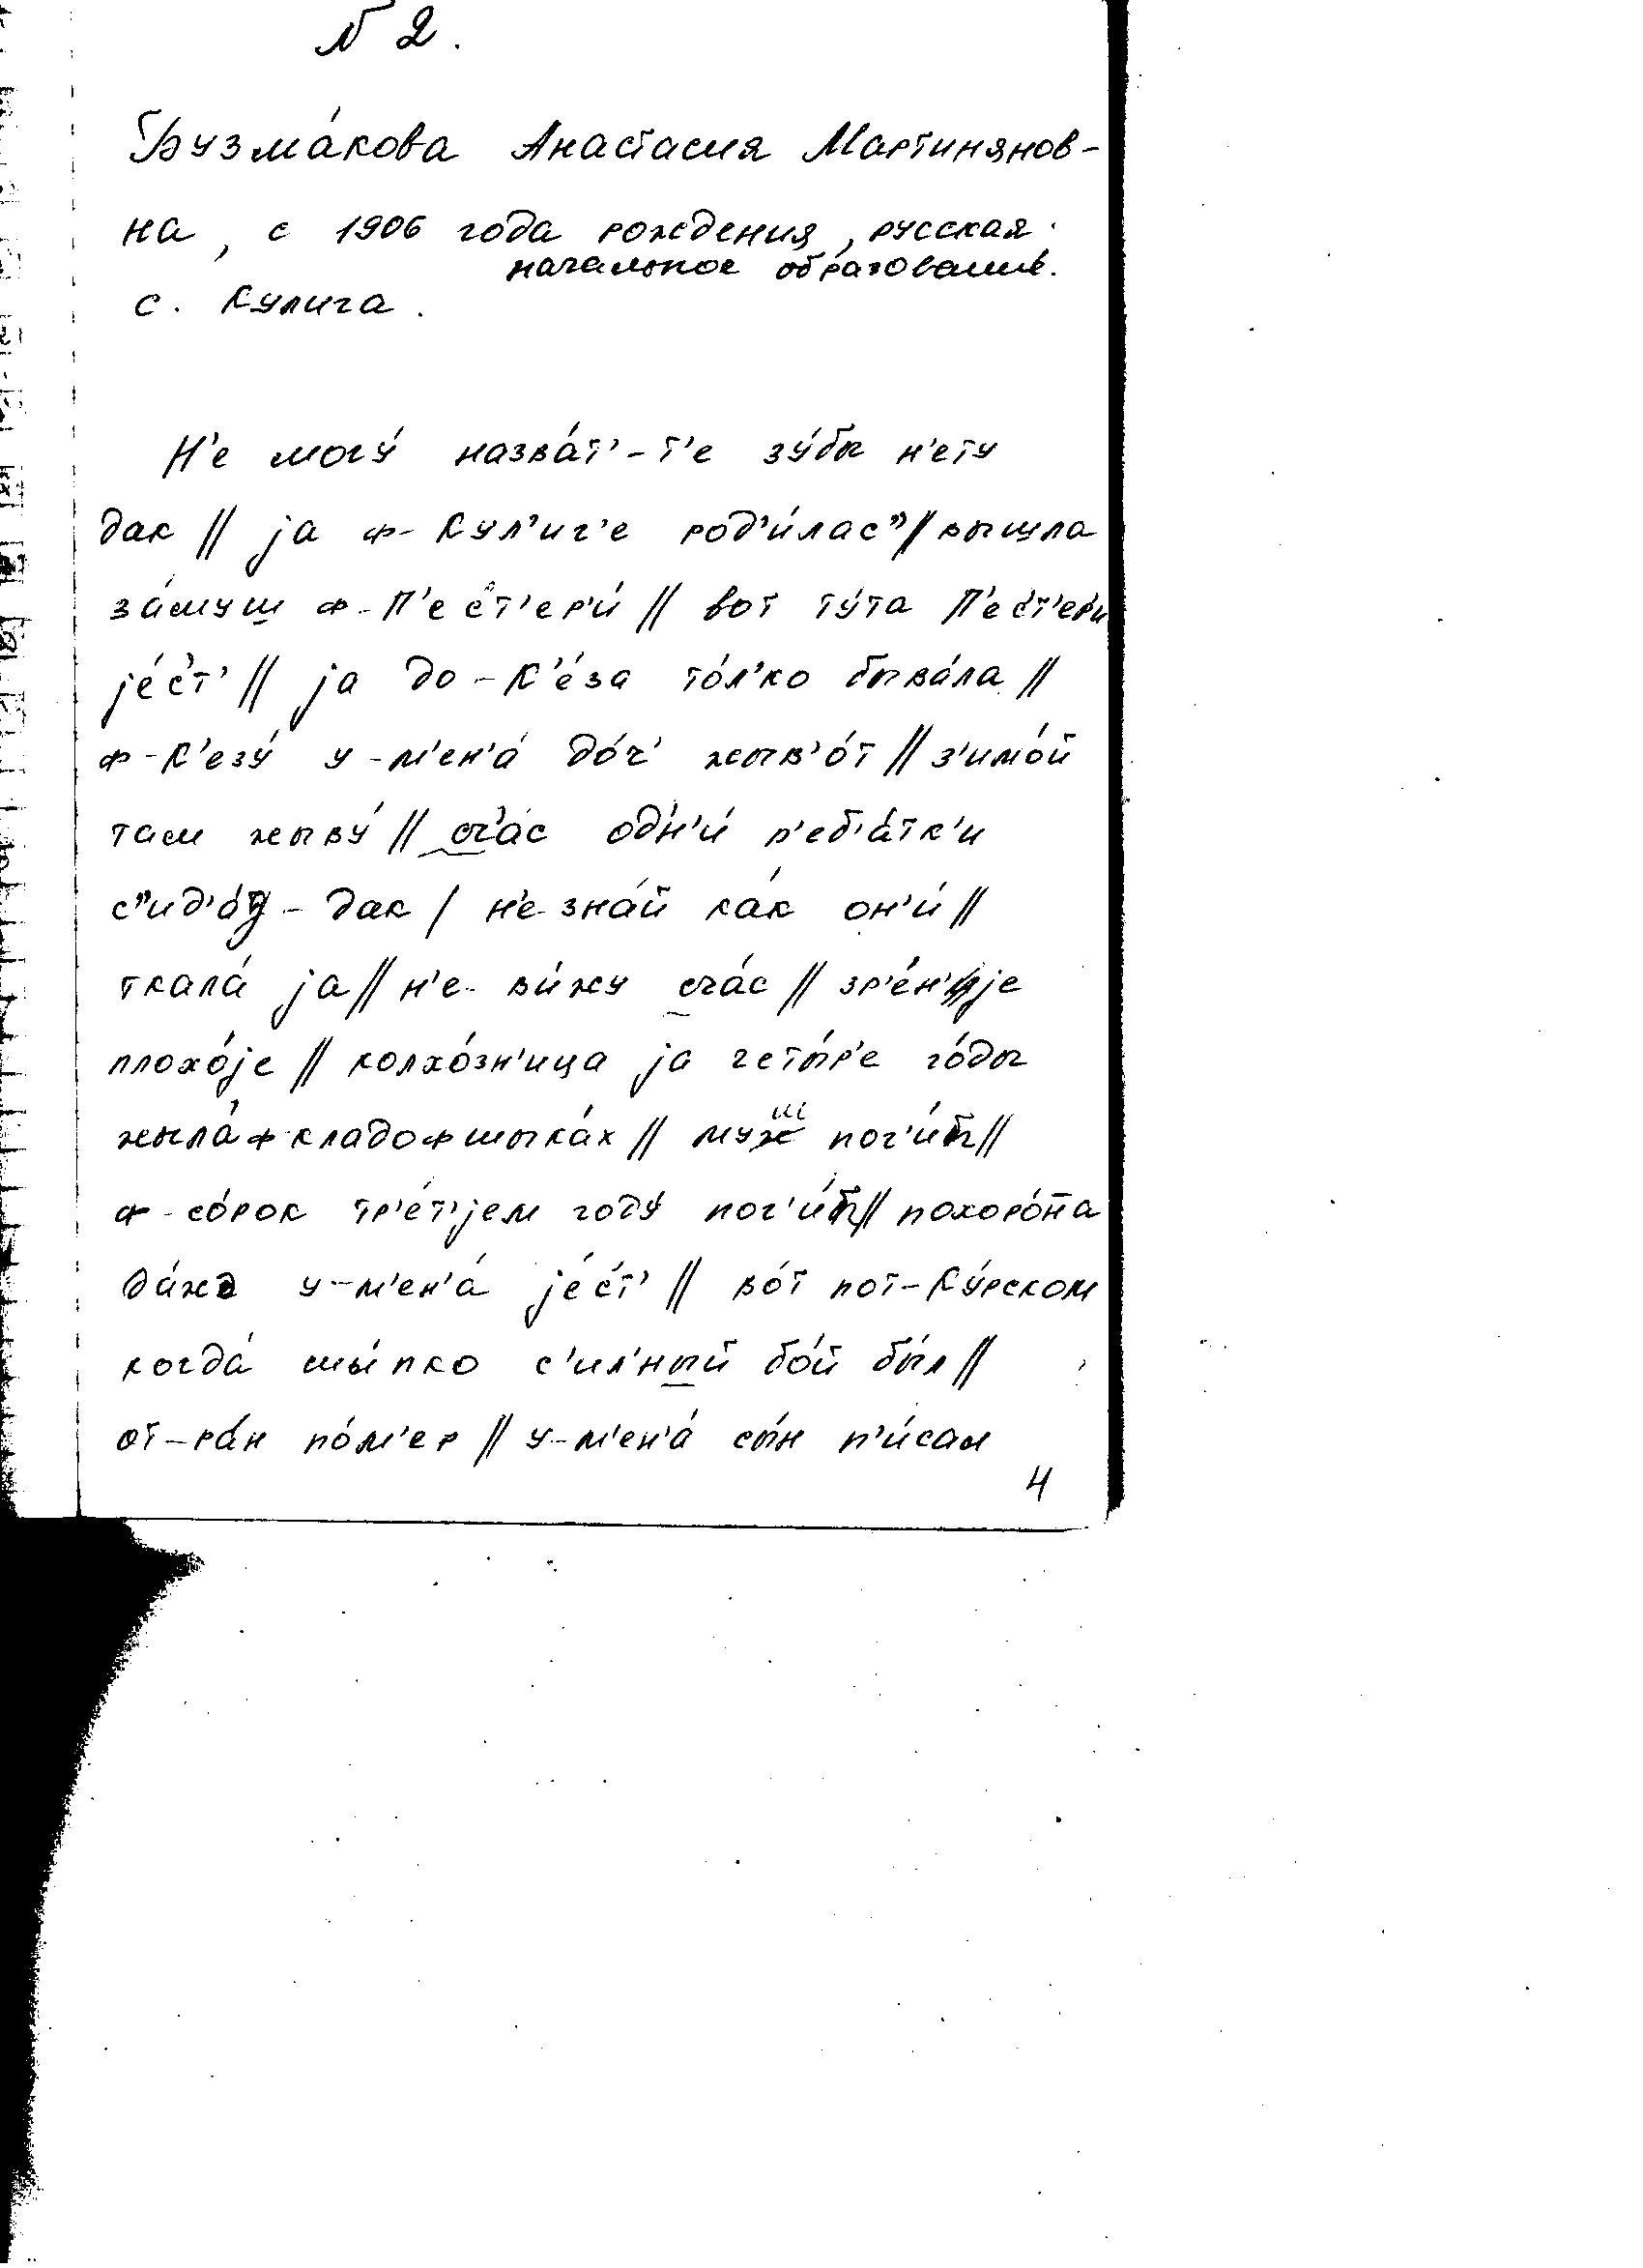 N 2.
Бузма́кова Анастасия Мартинянов-
на, с 1906 года рождения, русская.
начальное образование.
с. Кулига.
Н'е могу́ назва́т'-т'е зу́бы н'ету
дак // jа ф-Кул'иг'е род'и́лас" // вышла
за́муш ф-П'ес'т'ер'и́ // вот ту́та П'ес'т'ер'и
jе́с'т' // jа до-К'е́за то́л'ко быва́ла //
ф-К'езу́ у-м'ен'а́ до́ч' жыв'о́т // з'имо́й
там жыву́ // сч'а́с одн'и́ р'еб'а́тк'и
с"ид'а́т-дак / н'е-зна́й ка́к он'и́ //
ткала́ jа // н'е-ви́жу сча́с // зр'е́н'jе
плохо́jе // колхо́зн'ица jа четы́р'е го́ды
жыла́ ф кладофшыка́х // муш пог'и́п //
ф-со́рок тр'е́т'jем году́ пог'и́п // похоро́на
да́жэ у-м'ен'а́ jе́с'т' // во́т пот-Ку́рском
когда́ шы́пко с'ил'ный бо́й бы́л //
от-ра́н по́м'ер // у-м'ен'а́ сы́н п'и́сал
4